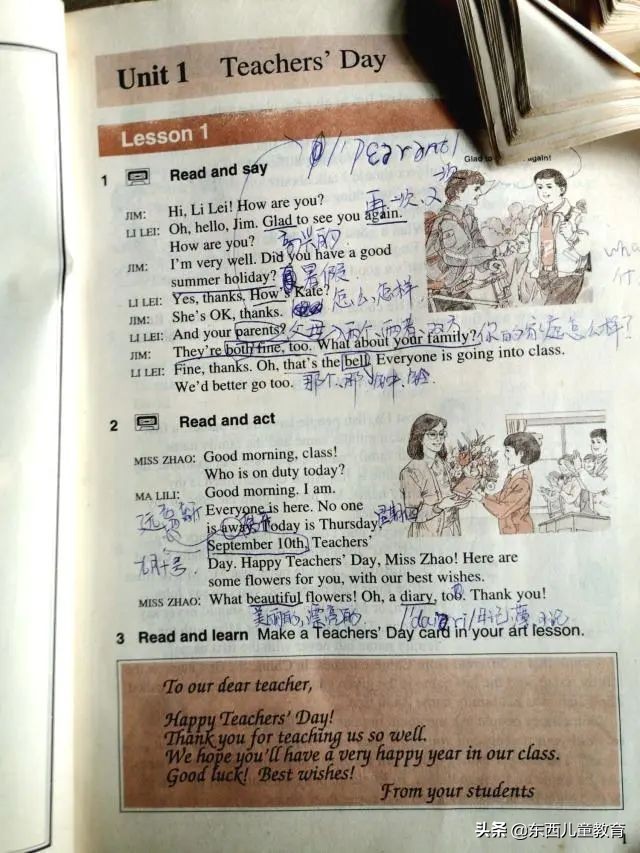 Unit 1 Teachers' Day
Lesson 1
Glad to again!
1 Read and say
再次、又一次
JIM: Hi, Li Lei! How are you?
LI LEI: Oh, hello, Jim. Glad to see you again.
How are you? 高兴的
JIM: I'm very well. Did you have a good
summer holiday? 暑假
LI LEI: Yes, thanks. How's Kate? 怎么、怎样
JIM: She's OK, thanks.
LI LEI: And your parents? 父母 两个、两者、双方
JIM: They're both fine, too. What about your family? 你的家庭怎么样?
LI LEI: Fine, thanks. Oh, that's the bell. Everyone is going into class.
We'd better go too. 那个、那
2 Read and act
MISS ZHAO: Good morning, class!
Who is on duty today?
MA LILI: Good morning. I am.
Everyone is here. No one
is away. Today is Thursday, 星期四
September 10th, Teachers'
Day. Happy Teachers' Day, Miss Zhao! Here are
some flowers for you, with our best wishes.
MISS ZHAO: What beautiful flowers! Oh, a diary, too. Thank you!
美丽的,漂亮的 日记
3 Read and learn Make a Teachers' Day card in your art lesson.
To our dear teacher,
Happy Teachers' Day!
Thank you for teaching us so well.
We hope you'll have a very happy year in our class.
Good luck! Best wishes!
From your students
头条 @东西儿童教育
1